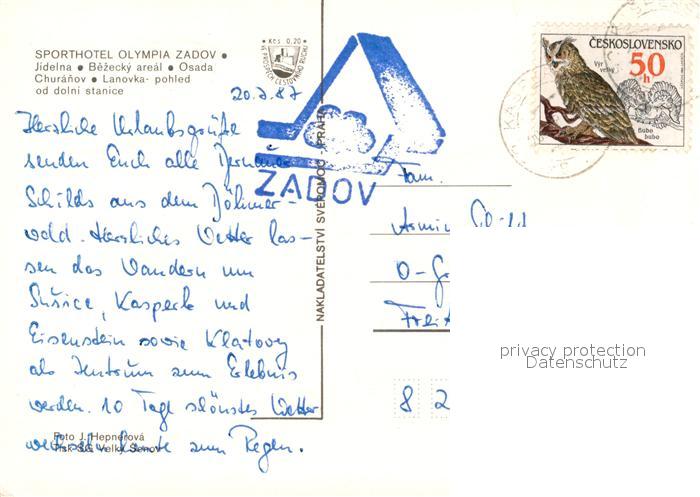 SPORTHOTEL OLYMPIA ZADOV •
Jídelna • Běžecký areál • Osada
Churáňov • Lanovka- pohled
od dolní stanice
Kčs 0,20
20.7.87
Herzliche Urlaubsgrüße
senden Euch alle
Schilds aus dem Böhmer-
wald. Herrliches Wetter las-
sen das Wandern um
Sušice, Kasperk und
Eisenstein sowie Klatovy
als Zentrum zum Erlebnis
werden. 10 Tage schönstes Wetter
wechseln heute zum Regen.
Foto J. Hepnerová
Tisk SG Velký Šenov
NAKLADATELSTVÍ PRAHA
ZADOV
ČESKOSLOVENSKO
50 h
Výr velký
Bubo
bubo
Fam.
Armin
O-G
Freit
8 2
privacy protection
Datenschutz